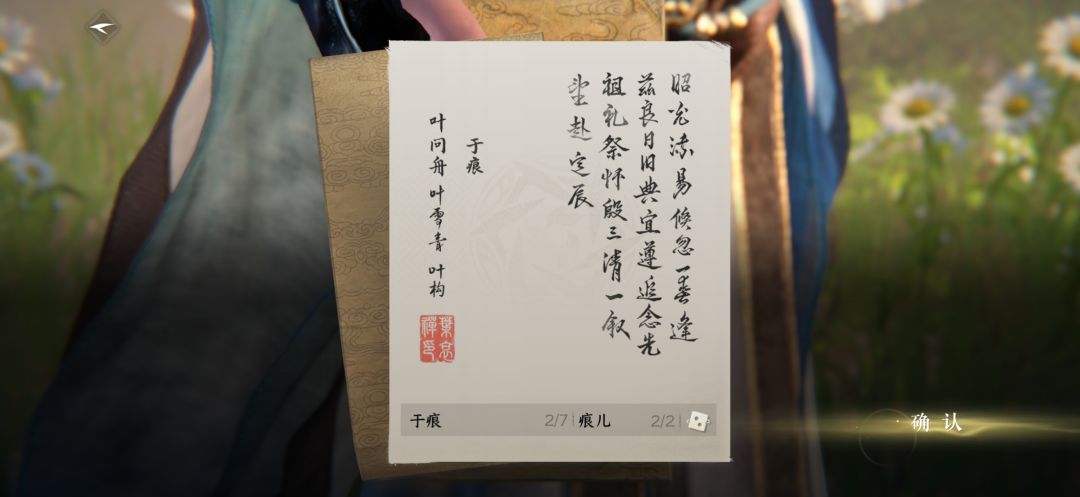 昭光流易倏忽一春逢
兹良日旧典宜遵追念先
祖礼祭怀殷三清一叙
望赴定辰
于痕
叶问舟 叶雪青 叶构
葉哀禪印
于痕 2/7 痕儿 2/2
确认